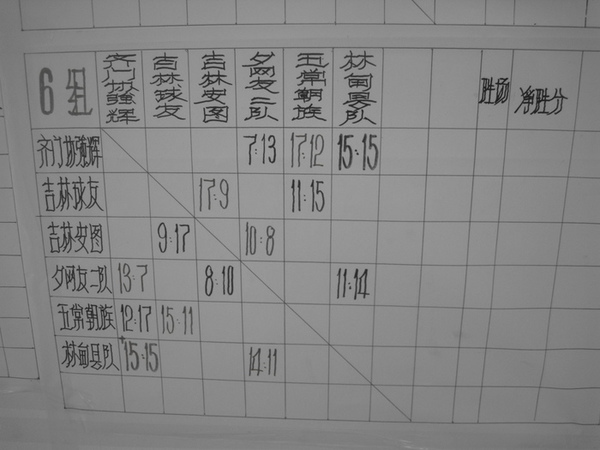 6组 齐门协强辉 吉林球友 吉林安图 夕网友二队 五常朝族 林甸县队 胜场 净胜分
齐门协强辉 7:13 17:12 15:15
吉林球友 17:9 11:15
吉林安图 9:17 10:8
夕网友二队 13:7 8:10 11:14
五常朝族 12:17 15:11
林甸县队 15:15 14:11